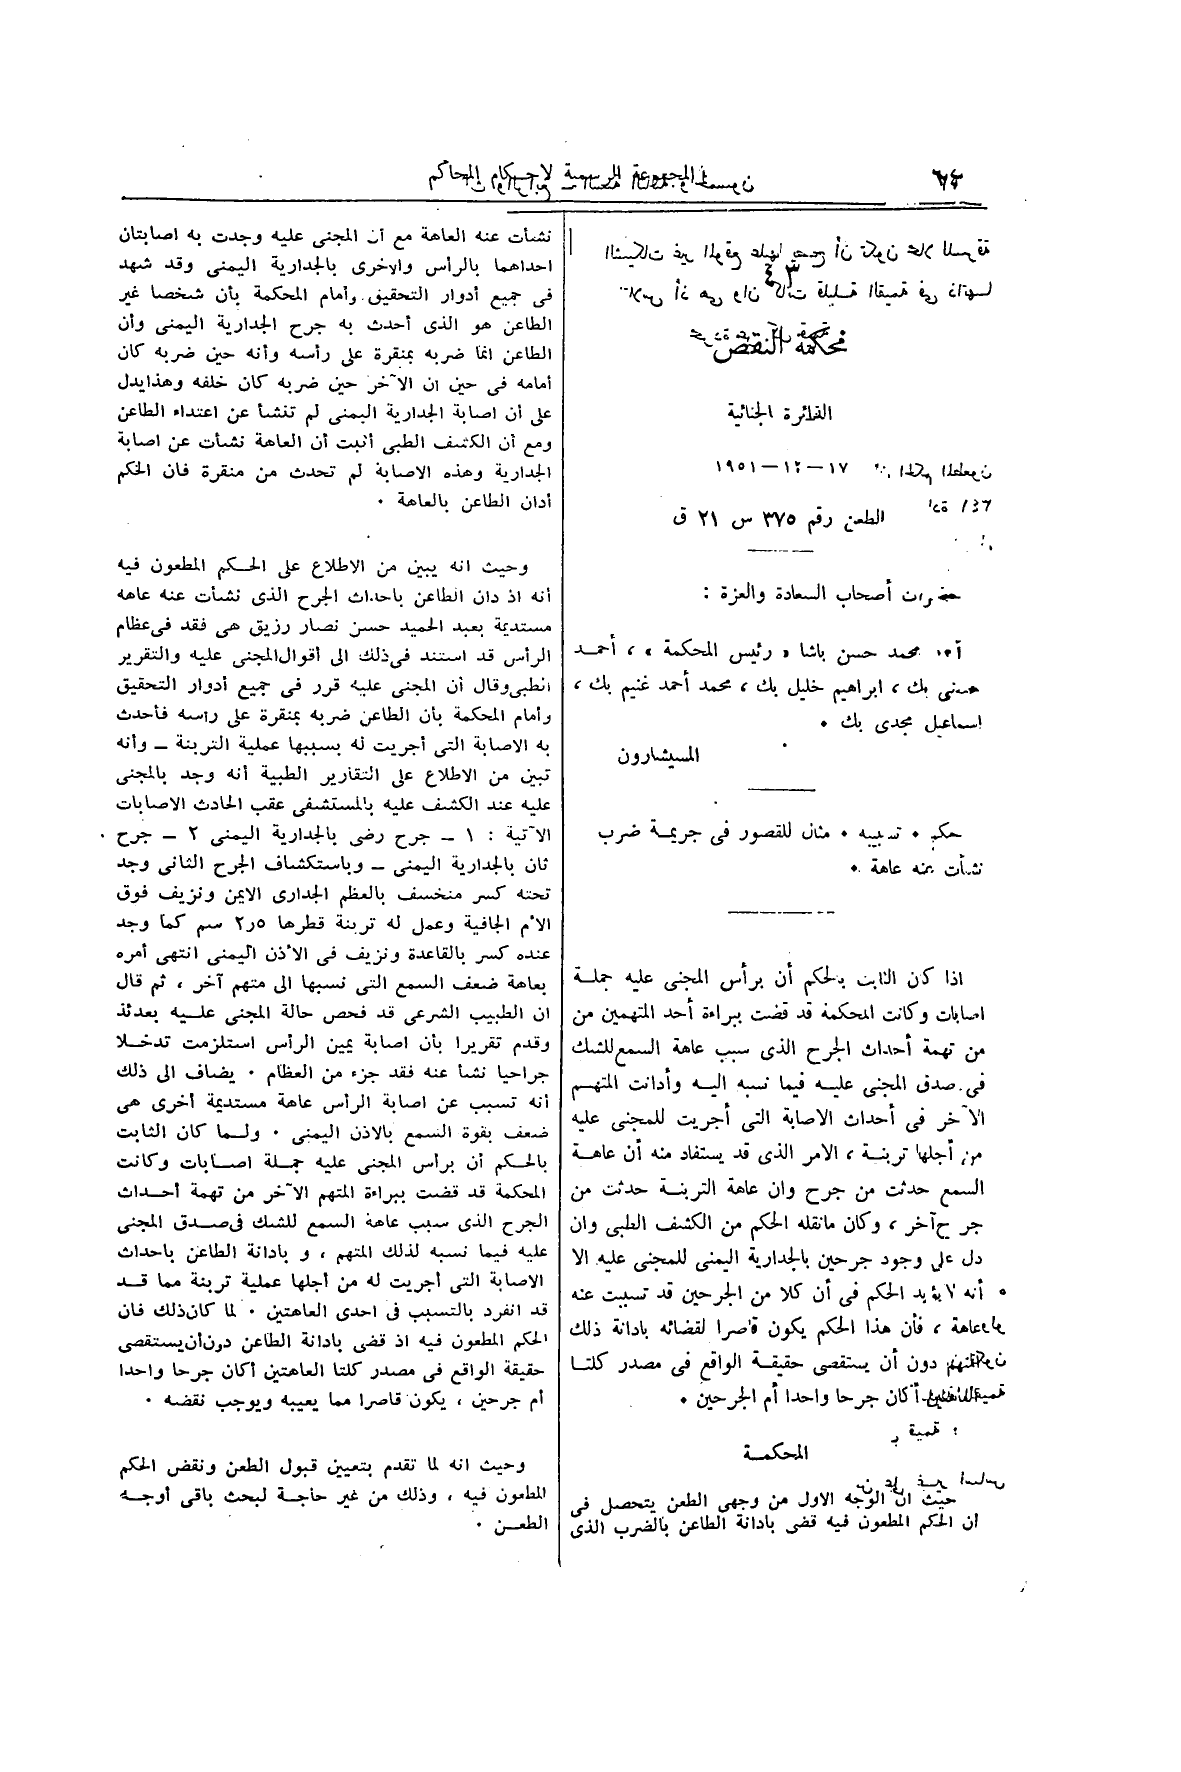 ٤٣
محكمة النقض
الدائرة الجنائية
١٧ – ١٢ – ١٩٥١
الطعن رقم ٣٧٥ س ٢١ ق
حضرات أصحاب السعادة والعزة :
محمد حسن باشا « رئيس المحكمة » ، أحمد
حسنى بك ، ابراهيم خليل بك ، محمد أحمد غنيم بك ،
اسماعيل مجدى بك •
المستشارون
حكم • تسبيبه • مثال للقصور فى جريمة ضرب
نشأت عنه عاهة •
اذا كان الثابت بالحكم أن برأس المجنى عليه جملة
اصابات وكانت المحكمة قد قضت ببراءة أحد المتهمين من
من تهمة أحداث الجرح الذى سبب عاهة السمع للشك
فى صدق المجنى عليه فيما نسبه اليه وأدانت المتهم
الآخر فى أحداث الاصابة التى أجريت للمجنى عليه
من أجلها تربنة ، الامر الذى قد يستفاد منه أن عاهة
السمع حدثت من جرح وان عاهة التربنة حدثت من
جرح آخر ، وكان مانقله الحكم من الكشف الطبى وان
دل على وجود جرحين بالجدارية اليمنى للمجنى عليه الا
أنه لا يؤيد الحكم فى أن كلا من الجرحين قد تسببت عنه
عاهة ، فأن هذا الحكم يكون قاصرا لقضائه بادانة ذلك
المتهم دون أن يستقصى حقيقة الواقع فى مصدر كلتا
العاهتين أكان جرحا واحدا أم الجرحين •
المحكمة
حيث ان الوجه الاول من وجهى الطعن يتحصل فى
أن الحكم المطعون فيه قضى بادانة الطاعن بالضرب الذى
نشأت عنه العاهة مع أن المجنى عليه وجدت به اصابتان
احداهما بالرأس والاخرى بالجدارية اليمنى وقد شهد
فى جميع أدوار التحقيق وأمام المحكمة بأن شخصا غير
الطاعن هو الذى أحدث به جرح الجدارية اليمنى وأن
الطاعن انما ضربه بمنقرة على رأسه وأنه حين ضربه كان
أمامه فى حين ان الآخر حين ضربه كان خلفه وهذا يدل
على أن اصابة الجدارية اليمنى لم تنشأ عن اعتداء الطاعن
ومع أن الكشف الطبى أثبت أن العاهة نشأت عن اصابة
الجدارية وهذه الاصابة لم تحدث من منقرة فان الحكم
أدان الطاعن بالعاهة •
وحيث انه يبين من الاطلاع على الحكم المطعون فيه
أنه اذ دان الطاعن باحداث الجرح الذى نشأت عنه عاهه
مستديمة بعبد الحميد حسن نصار رزيق هى فقد فى عظام
الرأس قد استند فى ذلك الى أقوال المجنى عليه والتقرير
الطبى وقال أن المجنى عليه قرر فى جميع أدوار التحقيق
وأمام المحكمة بأن الطاعن ضربه بمنقرة على رأسه فأحدث
به الاصابة التى أجريت له بسببها عملية التربنة – وأنه
تبين من الاطلاع على التقارير الطبية أنه وجد بالمجنى
عليه عند الكشف عليه بالمستشفى عقب الحادث الاصابات
الآتية : ١ – جرح رضى بالجدارية اليمنى ٢ – جرح
ثان بالجدارية اليمنى – وباستكشاف الجرح الثانى وجد
تحته كسر منخسف بالعظم الجدارى الايمن ونزيف فوق
الام الجافية وعمل له تربنة قطرها ٢٫٥ سم كما وجد
عنده كسر بالقاعدة ونزيف فى الاذن اليمنى انتهى أمره
بعاهة ضعف السمع التى نسبها الى متهم آخر ، ثم قال
ان الطبيب الشرعى قد فحص حالة المجنى عليه بعدئذ
وقدم تقريرا بأن اصابة يمين الرأس استلزمت تدخلا
جراحيا نشأ عنه فقد جزء من العظام • يضاف الى ذلك
أنه تسبب عن اصابة الرأس عاهة مستديمة أخرى هى
ضعف بقوة السمع بالاذن اليمنى • ولما كان الثابت
بالحكم أن برأس المجنى عليه جملة اصابات وكانت
المحكمة قد قضت ببراءة المتهم الآخر من تهمة أحداث
الجرح الذى سبب عاهة السمع للشك فى صدق المجنى
عليه فيما نسبه لذلك المتهم ، و بادانة الطاعن باحداث
الاصابة التى أجريت له من أجلها عملية تربنة مما قد
قد انفرد بالتسبب فى احدى العاهتين • لما كان ذلك فان
الحكم المطعون فيه اذ قضى بادانة الطاعن دون أن يستقصى
حقيقة الواقع فى مصدر كلتا العاهتين أكان جرحا واحدا
أم جرحين ، يكون قاصرا مما يعيبه ويوجب نقضه •
وحيث انه لما تقدم بتعيين قبول الطعن ونقض الحكم
المطعون فيه ، وذلك من غير حاجة لبحث باقى أوجه
الطعن •